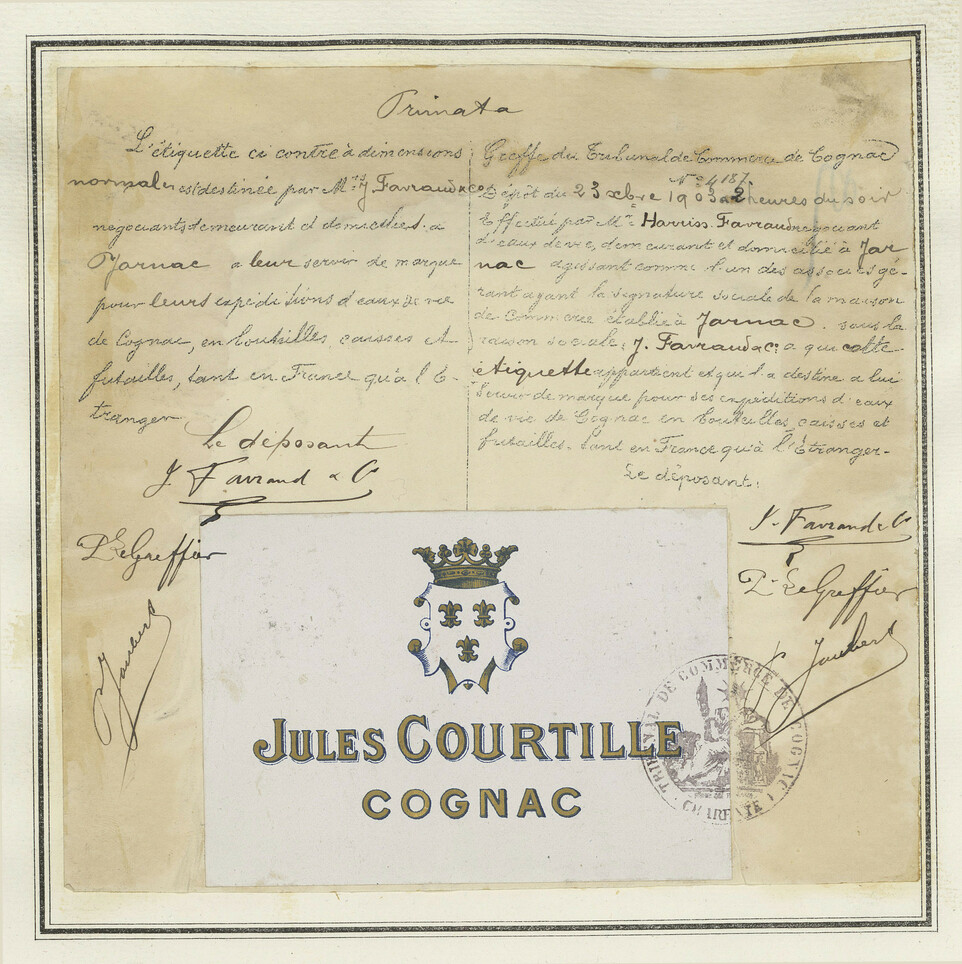 Primata
L'étiquette ci contre à dimensions
normales est destinée par M.rs J. Favraud & Co
négociants demeurant et domiciliés à
Jarnac a leur servir de marque
pour leurs expéditions d'eaux de vie
de Cognac, en bouteilles, caisses et
futailles, tant en France qu'à l'E-
tranger
Le déposant
J. Favraud & Co
Pr Le Greffier
Jaubert
Greffe du Tribunal de Commerce de Cognac
No 4187
Dépôt du 23 xbre 1903 à 2 heures du soir
Effectué par Mr Harriss Favraud négociant
d'eaux de vie, demeurant et domicilié à Jar
nac agissant comme l'un des associés gé-
rant ayant la signature sociale de la maison
de Commerce établie à Jarnac, sous la
raison sociale: J. Favraud & Cie a qui cette
étiquette appartient et qui l'a destine a lui
servir de marque pour ses expéditions d'eaux
de vie de Cognac en bouteilles, caisses et
futailles, tant en France qu'à l'Etranger-
Le déposant:
J. Favraud & Co
Pr Le Greffier
Jaubert
JULES COURTILLE
COGNAC
TRIBUNAL DE COMMERCE DE COGNAC
CHARENTE